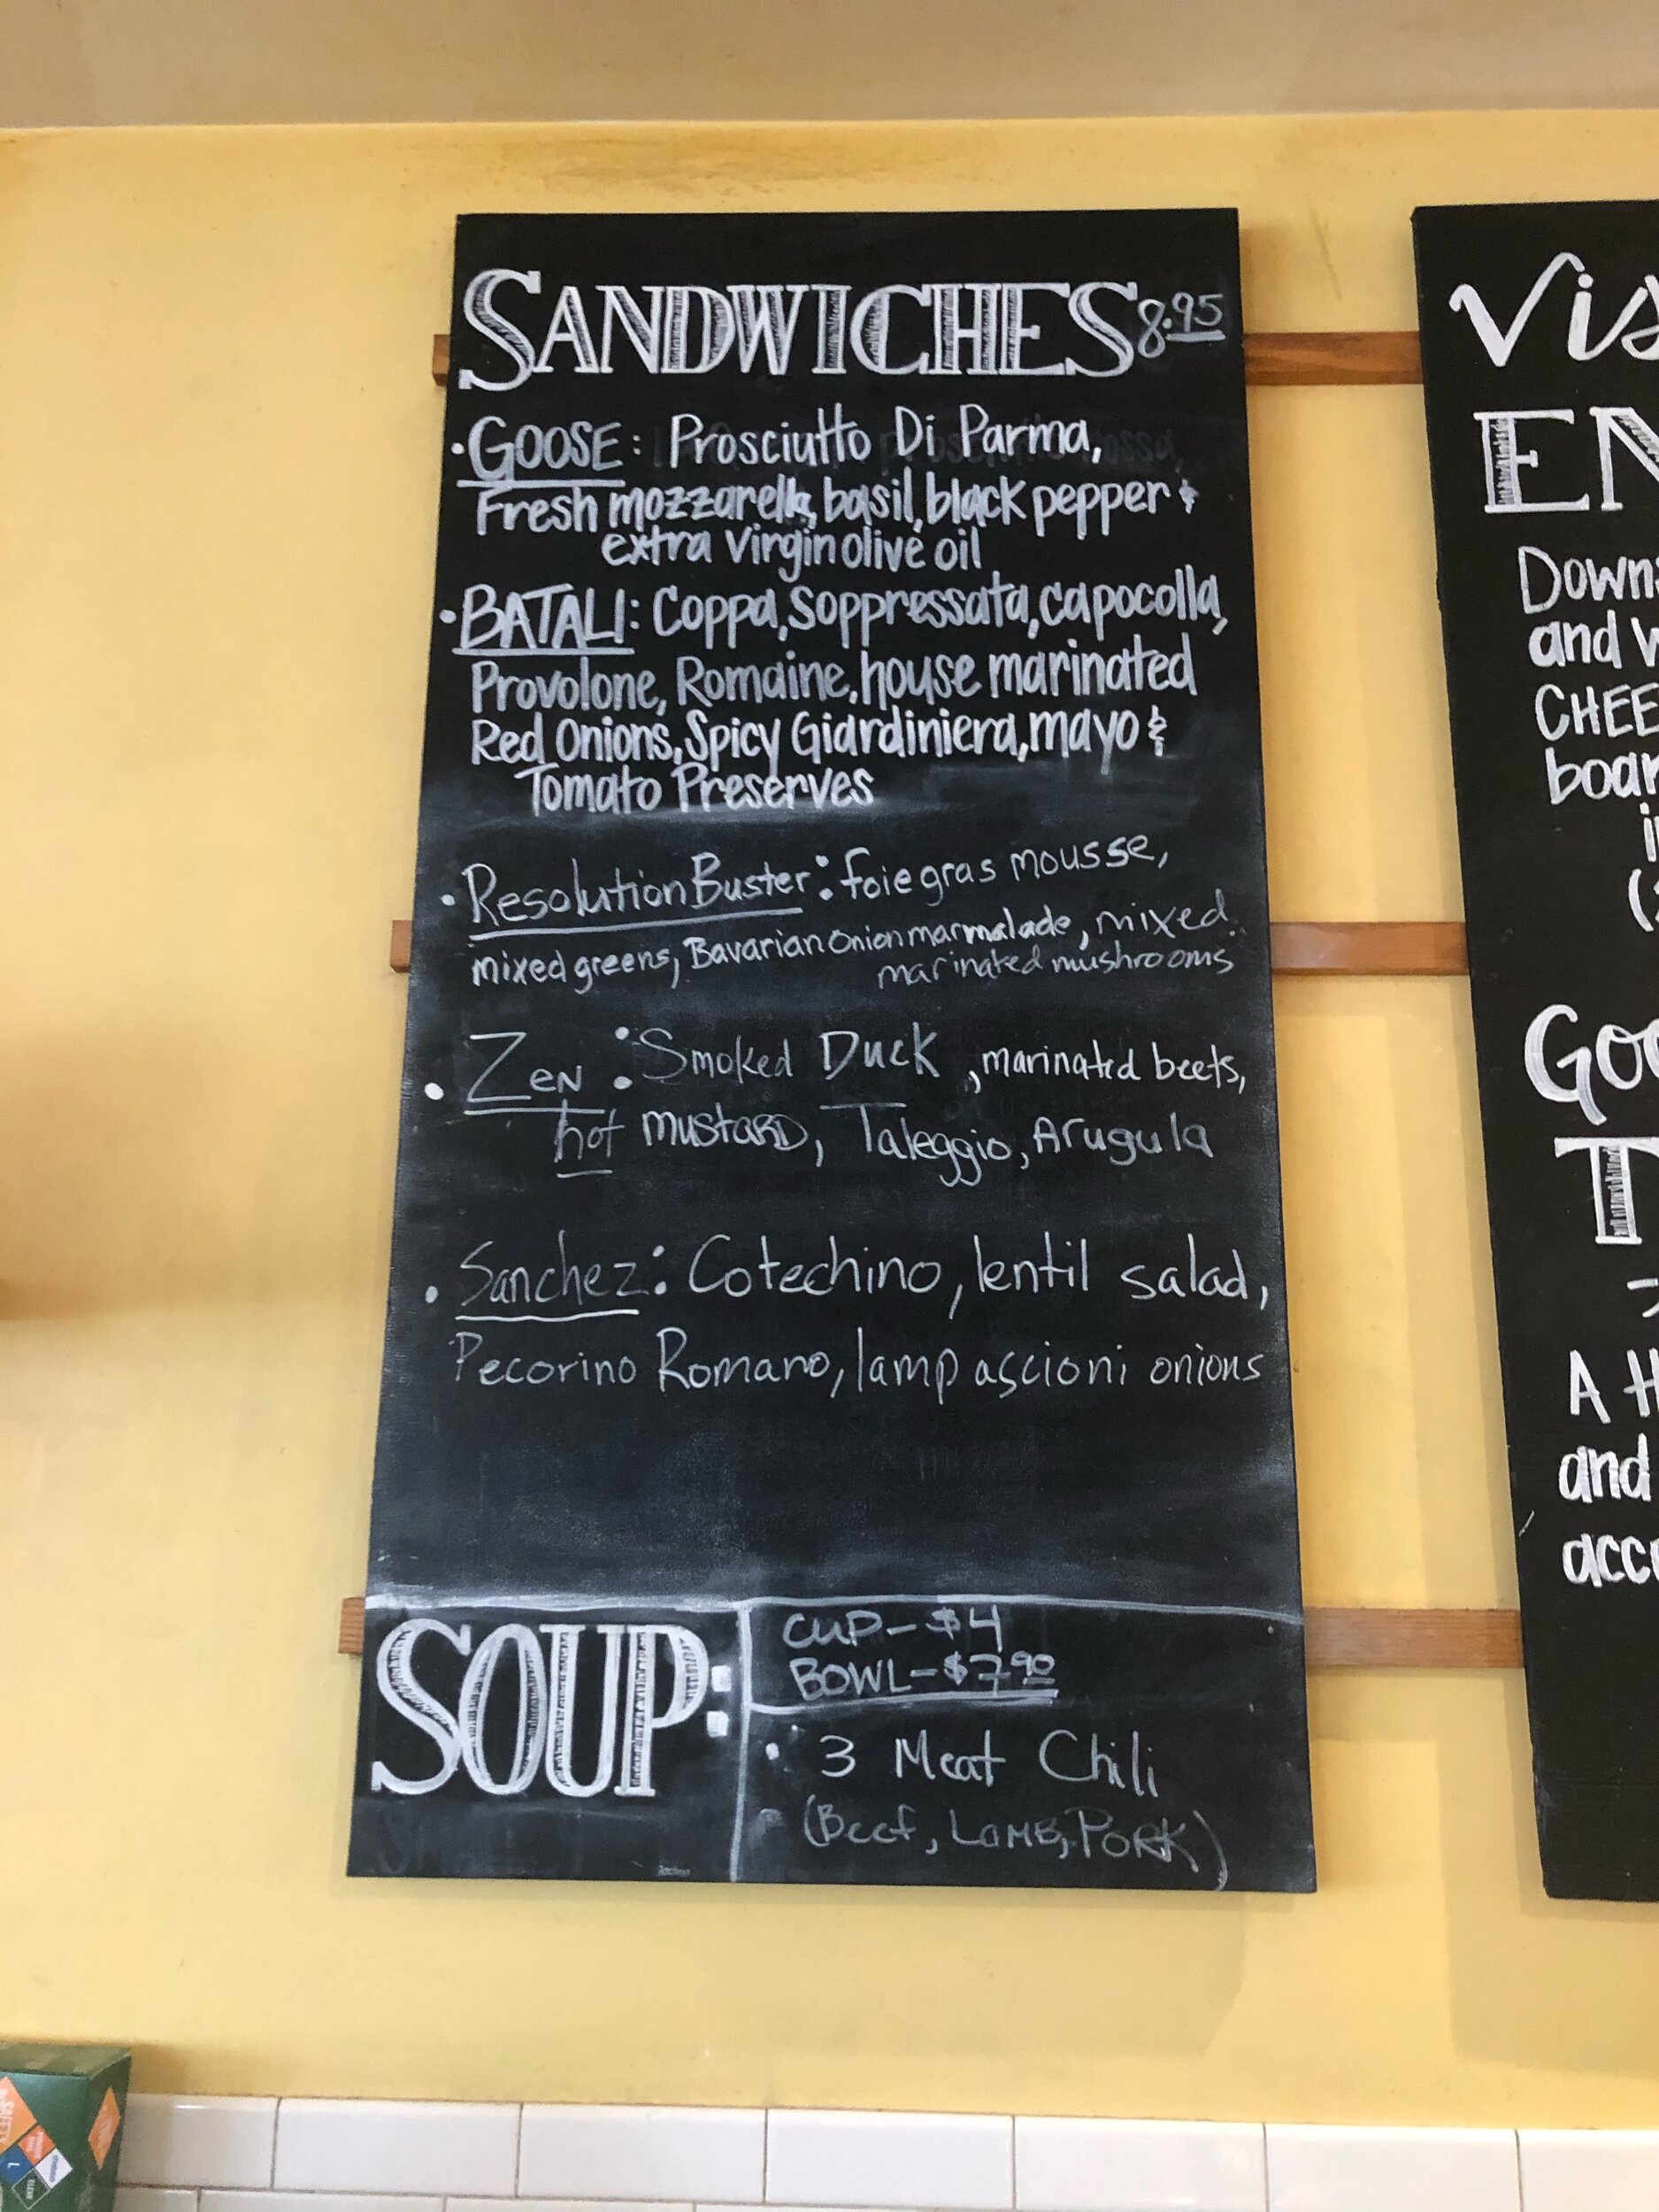 SANDWICHES 8.95
• GOOSE: Prosciutto Di Parma,
Fresh mozzarella, basil, black pepper &
extra virgin olive oil
• BATALI: Coppa, Soppressata, capocolla,
Provolone, Romaine, house marinated
Red Onions, Spicy Giardiniera, mayo &
Tomato Preserves
• Resolution Buster: foie gras mousse,
mixed greens, Bavarian Onion marmalade, mixed
marinated mushrooms
• Zen: Smoked Duck, marinated beets,
hot mustard, Taleggio, Arugula
• Sanchez: Cotechino, lentil salad,
Pecorino Romano, lampascioni onions
SOUP:
CUP - $4
BOWL - $7.90
• 3 Meat Chili
(Beef, Lamb, Pork)
Vis
EN
Down
and w
CHEE
boar
i
Goo
T
A H
and
acc